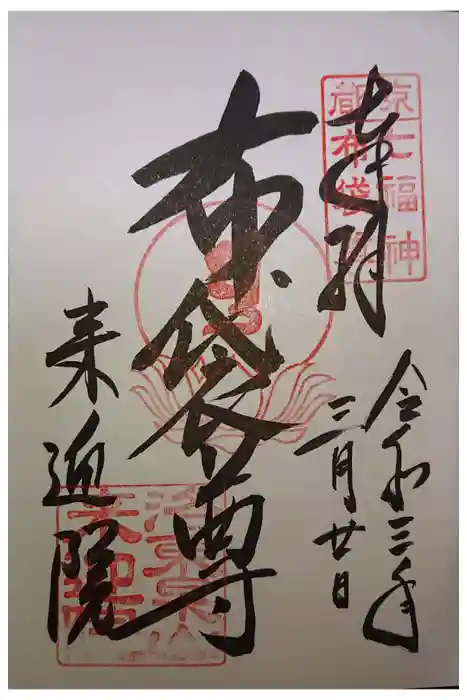 奉拝
京七福神
都布袋尊
令和三年
三月廿日
布袋尊
来迎院